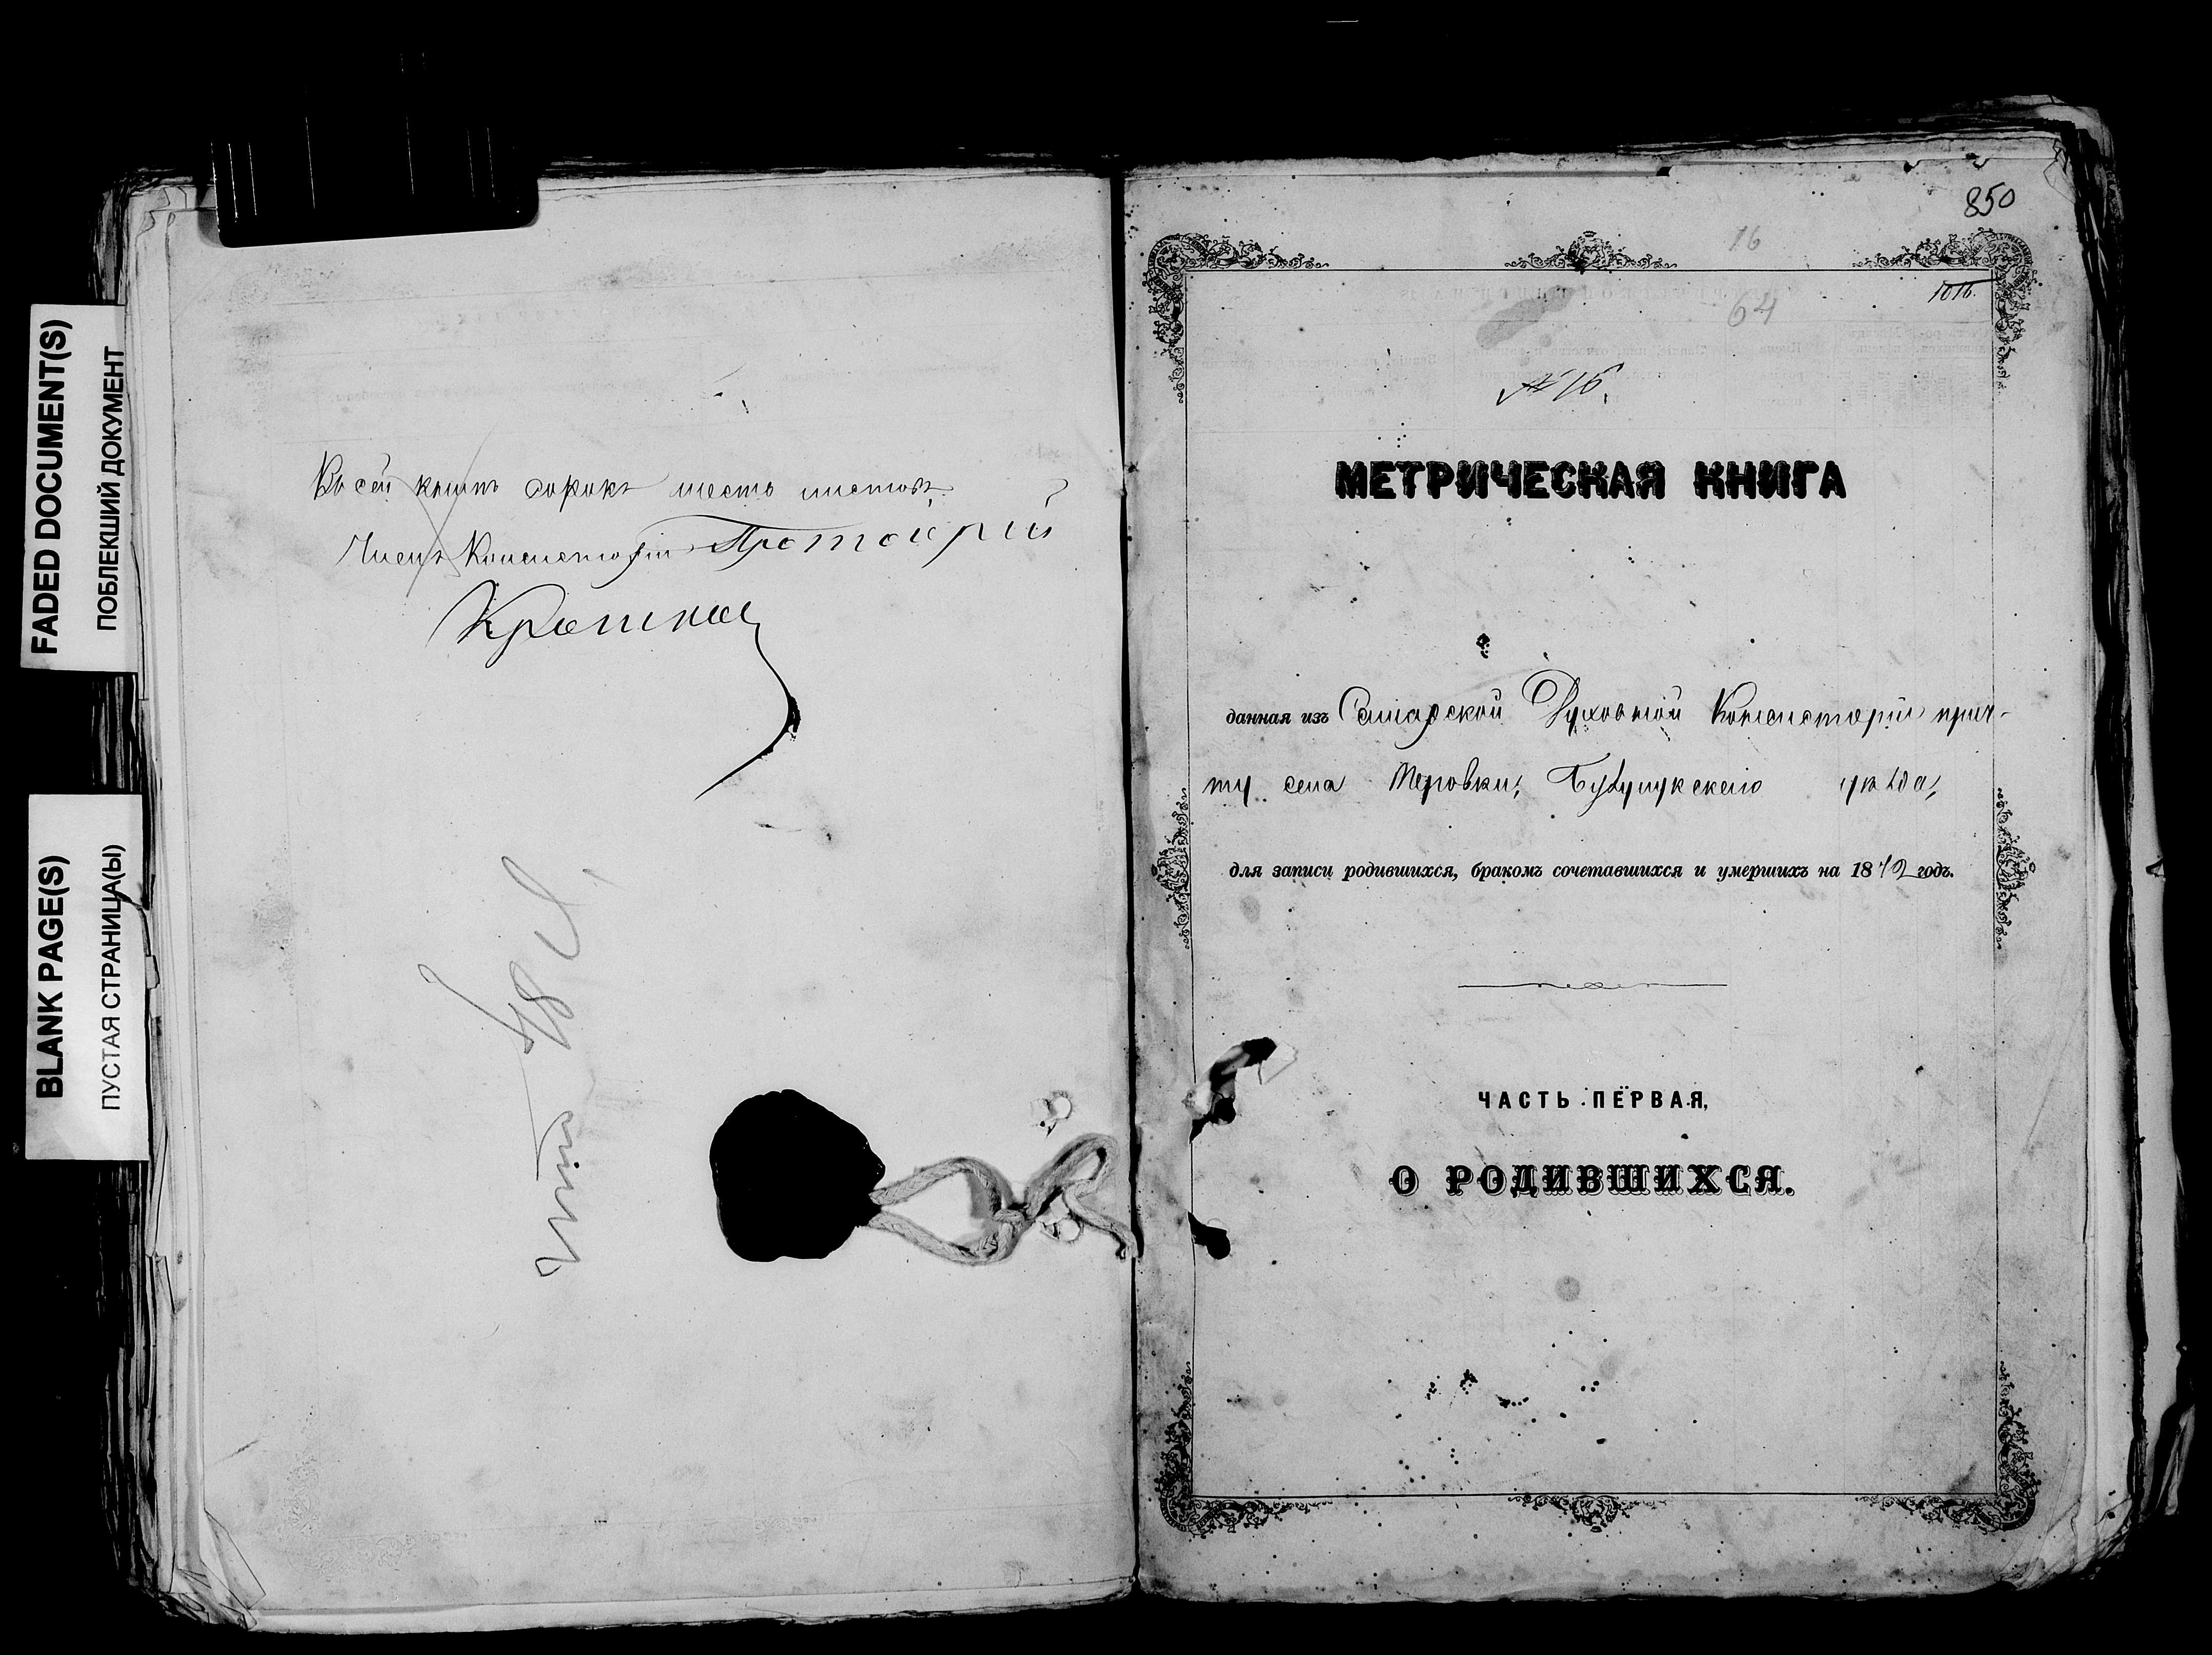 FADED DOCUMENT(S)
ПОБЛЕКШИЙ ДОКУМЕНТ
BLANK PAGE(S)
ПУСТАЯ СТРАНИЦА(Ы)
Въ сей книгѣ сорокъ шесть листовъ.
Членъ Консисторіи Протоіерей
850
16
1016.
64
№ 16.
МЕТРИЧЕСКАЯ КНИГА
данная изъ Самарской Духовной Консисторіи прич-
ту села Бузулукскаго уѣзда,
для записи родившихся, бракомъ сочетавшихся и умершихъ на 18 годъ.
ЧАСТЬ ПЕРВАЯ,
О РОДИВШИХСЯ.